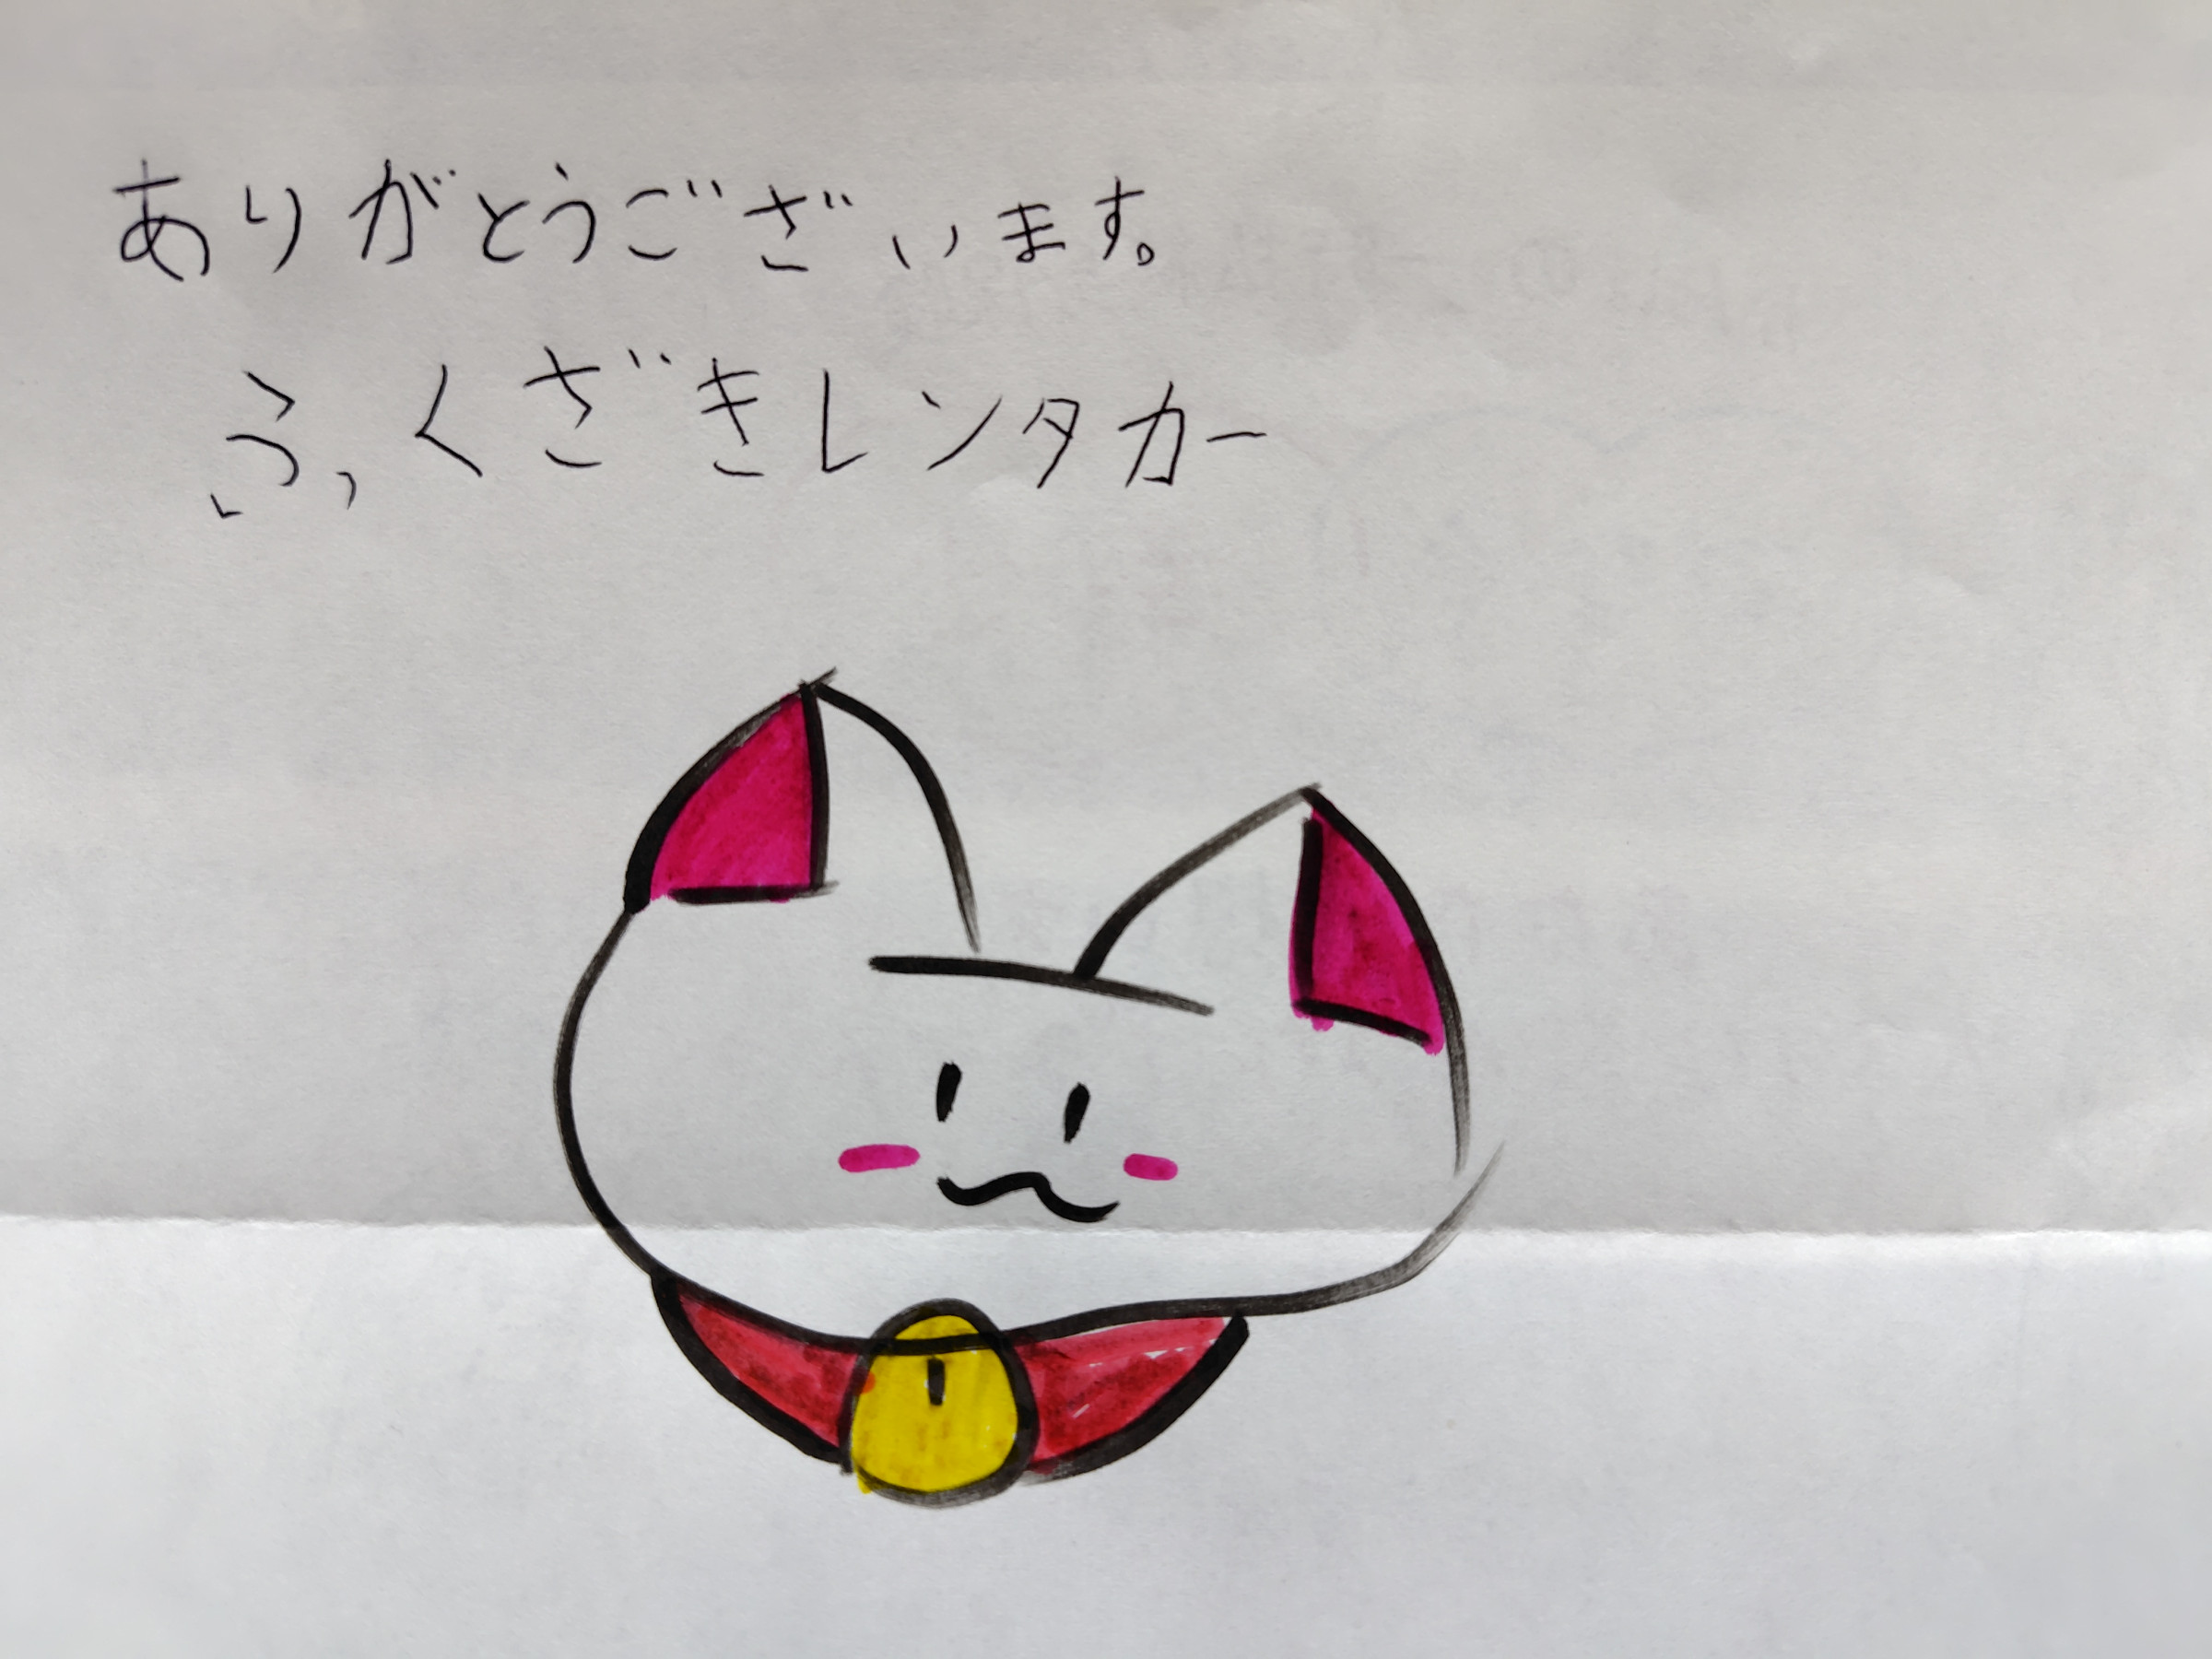 ありがとうございます。
ふくざきレンタカー